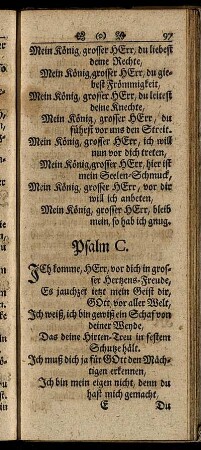 (o) 97
Mein König, grosser HErr, du liebest
deine Rechte,
Mein König, grosser HErr, du gie-
best Frömmigkeit,
Mein König, grosser HErr, du leitest
deine Knechte,
Mein König, grosser HErr, du
führest vor uns den Streit.
Mein König, grosser HErr, ich will
nun vor dich treten,
Mein König, grosser HErr, hier ist
mein Seelen-Schmuck,
Mein König, grosser HErr, vor dir
will ich anbeten,
Mein König, grosser HErr, bleib
mein, so hab ich gnug.
Psalm C.
ICh komme, HErr, vor dich in gros-
ser Hertzens-Freude,
Es jauchzet jetzt mein Geist dir,
GOtt, vor aller Welt,
Ich weiß, ich bin gewiß ein Schaf von
deiner Weyde,
Das deine Hirten-Treu in festem
Schutze hält.
Ich muß dich ja für GOtt den Mäch-
tigen erkennen,
Ich bin mein eigen nicht, denn du
hast mich gemacht,
E Du